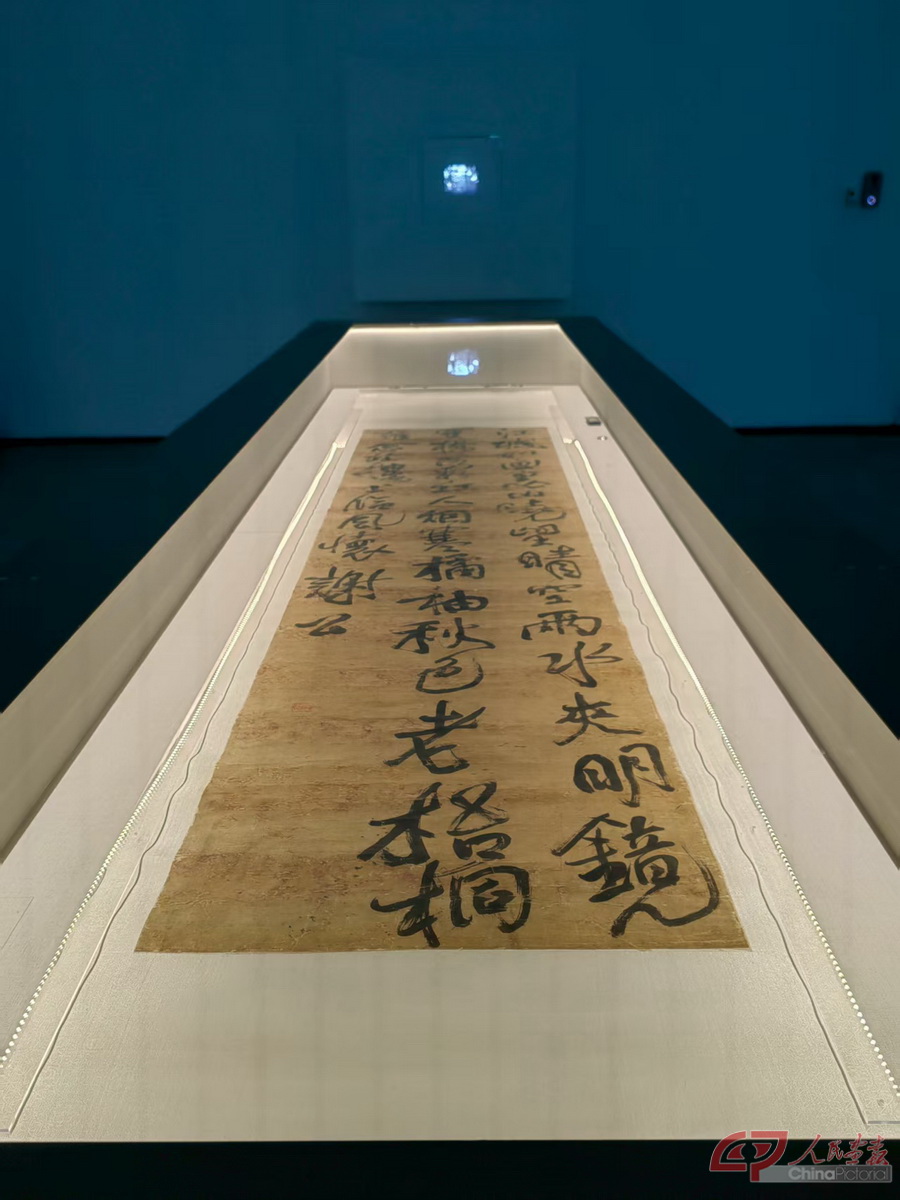 江城如畫裏山曉望晴空兩水夾明鏡
雙橋落彩虹人烟寒橘柚秋色老梧桐
誰念北樓上臨風懷謝公
人民画报
ChinaPictorial